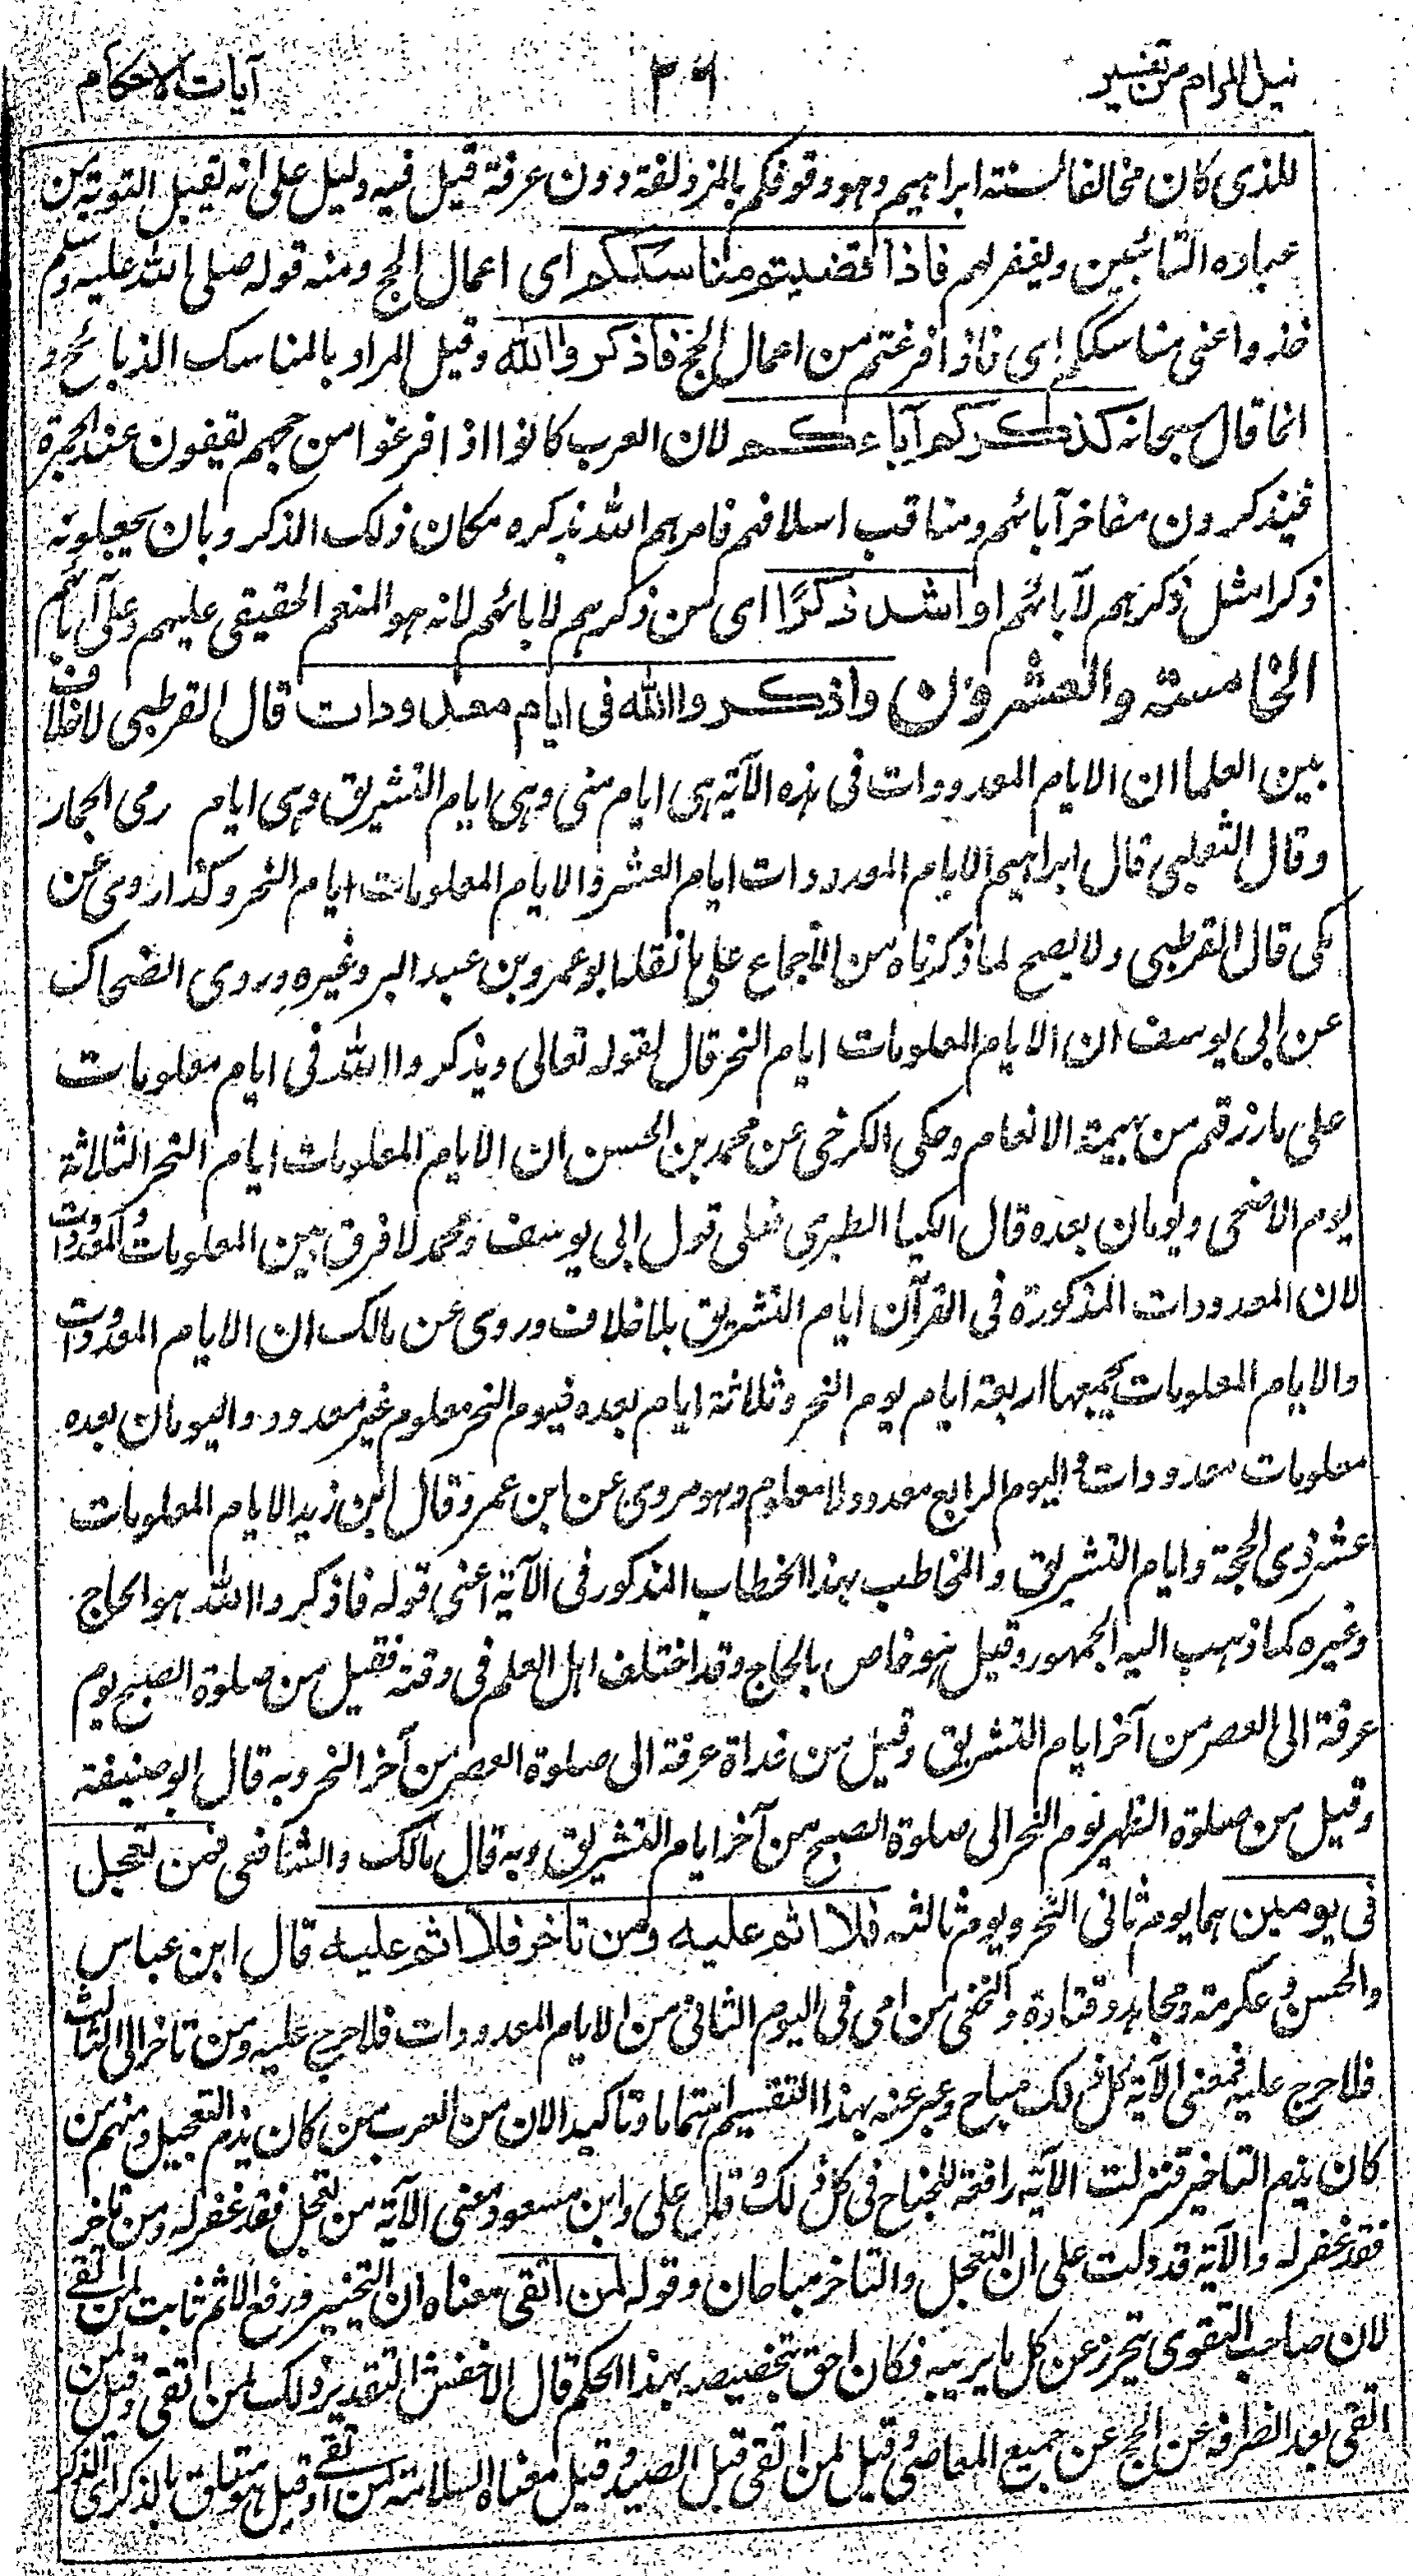 نيل المرام من تفسير
٣٦
آيات الاحكام
للذى كان مخالفا لسنة ابراہيم وہو وقوفكم بالمزدلفة دون عرفة قيل فيه دليل على انه يقبل التوبة من
عباده التائبين ويغفر لهم فاذا قضيتم مناسككم اى اعمال الحج ومنه قوله صلى الله عليه وسلم
خذوا عنى مناسككم اى فاذا فرغتم من اعمال الحج فاذكروا الله وقيل المراد بالمناسك الذبائح و
انما قال سبحانه كذكركم آباءكم لان العرب كانوا اذا فرغوا من حجهم يقفون عند الجمرة
فيذكرون مفاخر آبائهم ومناقب اسلافهم فامرہم الله بذكره مكان ذلك الذكر وبان يجعلونه
ذكرا مثل ذكرہم لآبائهم او اشد ذكرًا اى من ذكرہم لابائهم لانه ہو المنعم الحقيقى عليهم وعلى آبائهم
الخامسة والعشرون واذكروا الله فى ايام معدودات قال القرطبى لا خلاف
بين العلما ان الايام المعدودات فى ہذه الآية ہى ايام منى وہى ايام التشريق وہى ايام رمى الجمار
وقال الثعلبى قال ابراہيم الايام المعدودات ايام العشر والايام المعلومات ايام النحر وكذا روى عن
مكى قال القرطبى ولا يصح لما ذكرناه من الاجماع على ما نقله ابو عمرو بن عبد البر وغيره وروى الضحاك
عن ابى يوسف ان الايام المعلومات ايام النحر قال لقوله تعالى ويذكروا الله فى ايام معلومات
على ما رزقهم من بہيمة الانعام وحكى الكرخى عن محمد بن الحسن ان الايام المعلومات ايام النحر الثلاثة
يوم الاضحى ويومان بعده قال الكيا الطبرى فعلى قول ابى يوسف ومحمد لا فرق بين المعلومات والمعدودات
لان المعدودات المذكورة فى القرآن ايام التشريق بلا خلاف وروى عن مالك ان الايام المعدودات
والايام المعلومات يجمعها اربعة ايام يوم النحر وثلاثة ايام بعده فيوم النحر معلوم غير معدود واليومان بعده
معلومات معدودات واليوم الرابع معدود لا معلوم وہو مروى عن ابن عمر وقال ابن زيد الايام المعلومات
عشر ذى الحجة وايام التشريق والمخاطب بہذا الخطاب المذكور فى الآية اعنى قوله فاذكروا الله ہو الحاج
وغيره كما ذہب اليه الجمهور وقيل ہو خاص بالحاج وقد اختلف اہل العلم فى وقته فقيل من صلوة الصبح يوم
عرفة الى العصر من آخر ايام التشريق وقيل من غداة عرفة الى صلوة العصر من آخر النحر وبه قال ابو حنيفة
وقيل من صلوة الظهر يوم النحر الى صلوة الصبح من آخر ايام التشريق وبه قال مالك والشافعى فمن تعجل
فى يومين ہما يوم ثانى النحر ويوم ثالثه فلا اثم عليه ومن تاخر فلا اثم عليه قال ابن عباس
والحسن وعكرمة ومجاہد وقتادة والنخعى من رمى فى اليوم الثانى من الايام المعدودات فلا حرج عليه ومن تاخر الى الثالث
فلا حرج عليه فمعنى الآية كل ذلك مباح وعبر عنه بہذا التقسيم اہتماما وتاكيدا لان من العرب من كان يذم التعجيل ومنهم من
كان يذم التاخير فنزلت الآية رافعة للجناح فى كل ذلك وقال على وابن مسعود معنى الآية من تعجل فقد غفر له ومن تاخر
فقد غفر له والآية قد دلت على ان التعجل والتاخر مباحان وقوله لمن اتقى معناه ان التخيير ورفع الاثم ثابت لمن اتقى
لان صاحب التقوى يتحرز عن كل ما يريبه فكان احق بتخصيصه بہذا الحكم قال الاخفش التقدير ذلك لمن اتقى وقيل لمن
اتقى بعد انصرافه عن الحج عن جميع المعاصى وقيل لمن اتقى قتل الصيد وقيل معناه السلامة لمن اتقى وقيل ہو متعلق بالذكر اى الذكر